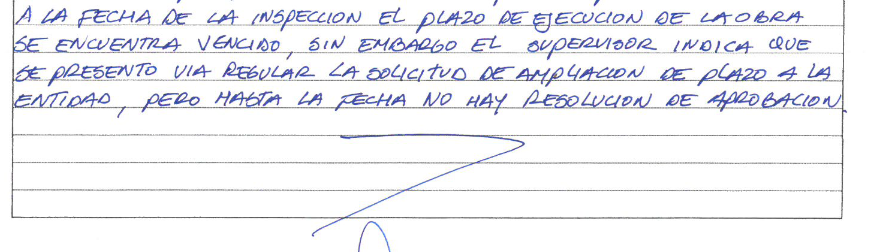 A LA FECHA DE LA INSPECCION EL PLAZO DE EJECUCION DE LA OBRA
SE ENCUENTRA VENCIDO, SIN EMBARGO EL SUPERVISOR INDICA QUE
SE PRESENTO VIA REGULAR LA SOLICITUD DE AMPLIACION DE PLAZO A LA
ENTIDAD, PERO HASTA LA FECHA NO HAY RESOLUCION DE APROBACION.